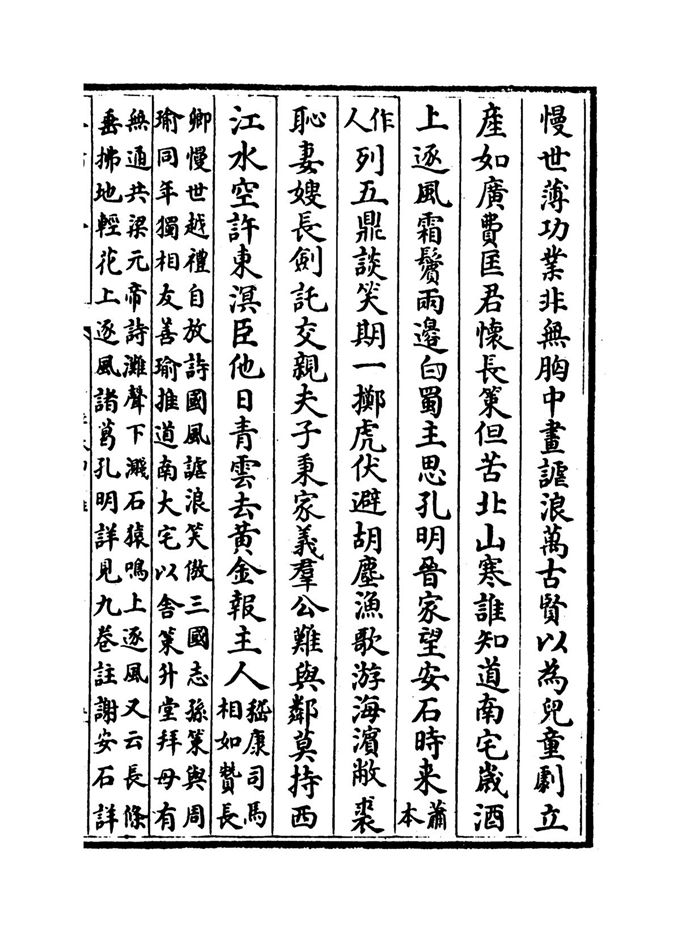 慢世薄功業非無胸中畫謔浪萬古賢以為兒童劇立
産如廣費匡君懷長策但苦北山寒誰知道南宅歳酒
上逐風霜鬢兩邊白蜀主思孔明晉家望安石時来蕭本
作人列五鼎談笑期一擲虎伏避胡塵漁歌游海濱敝裘
恥妻嫂長劍託交親夫子秉家義羣公難與鄰莫持西
江水空許東溟臣他日青雲去黃金報主人嵇康司馬
相如贊長
卿慢世越禮自放詩國風謔浪笑傲三國志孫策與周
瑜同年獨相友善瑜推道南大宅以舎策升堂拜母有
無通共梁元帝詩灘聲下濺石猿鳴上逐風又云長條
垂拂地輕花上逐風諸葛孔明詳見九卷註謝安石詳